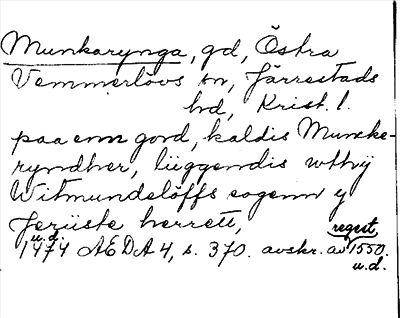 Munkarynga, gd, Östra
Vemmerlövs sn, Järrestads
hd, Krist. l.
paa enn gord, kaldis Muncke-
ryndher, liiggendis wthÿ
Witmundslöffs sogenn y
Jerüste herrett,
u.d. regest
1474 AEDA 4, s. 370. avskr. av 1550.
u.d.